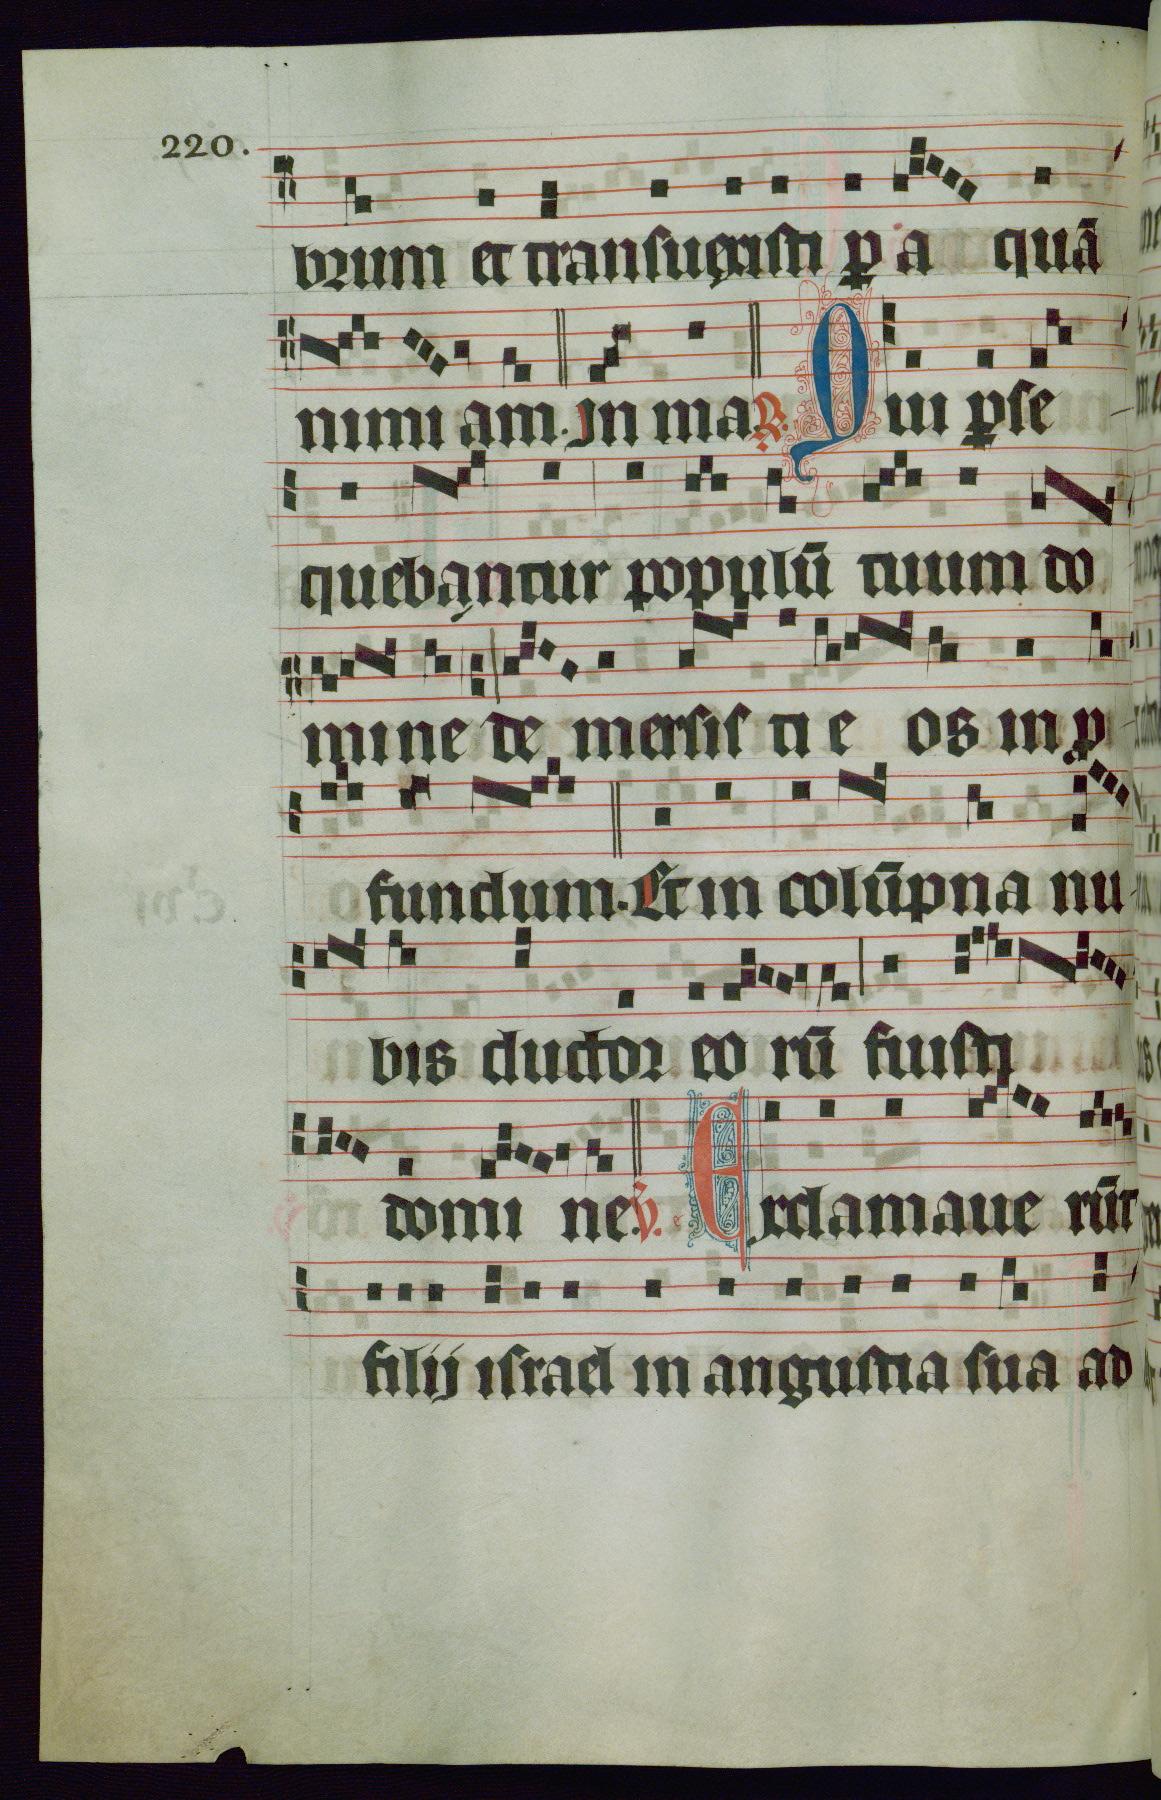 220.
brum et transuexisti p̱ a quā
nimi am. In ma ℟. Qui p̱se
quebantur populū tuum do
mine de mersis ti e os in ꝓ
fundum. Et in colūpna nu
bis ductor eo rū fuisti
domi ne. ℣. Exclamaue rūt
filij israel in angustia sua ad